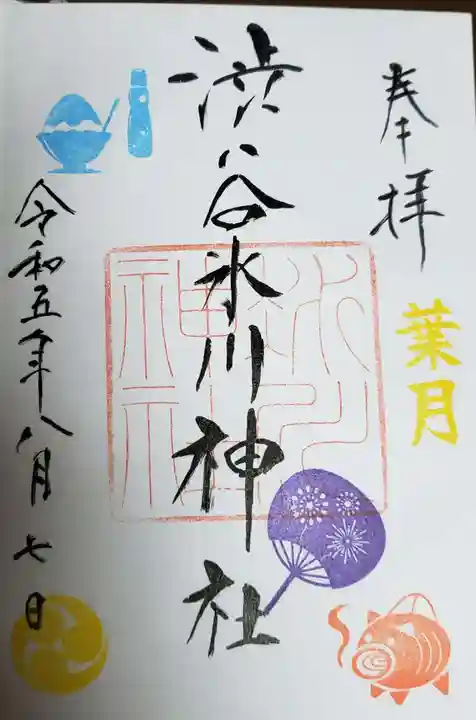 奉拝
葉月
渋谷氷川神社
氷川
神社
令和五年八月七日